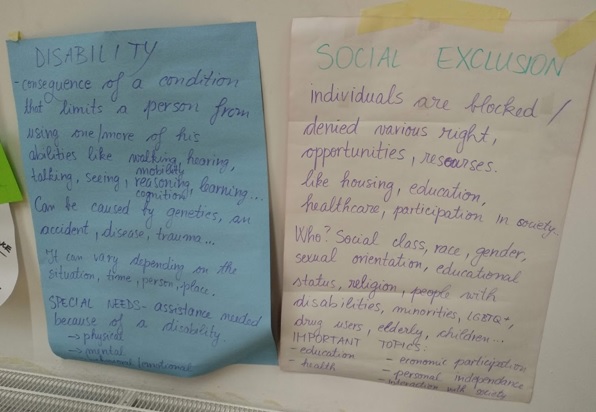 DISABILITY
- consequence of a condition
that limits a person from
using one/more of his
abilities like walking, hearing,
mobility
talking, seeing, reasoning, learning...
cognition
Can be caused by genetics, an
accident, disease, trauma...
It can vary depending on the
situation, time, person, place.
SPECIAL NEEDS - assistance needed
because of a disability.
→ physical
→ mental
emotional
SOCIAL EXCLUSION
individuals are blocked /
denied various right,
opportunities, resourses.
like housing, education,
healthcare, participation in society.
Who? Social class, race, gender,
sexual orientation, educational
status, religion, people with
disabilities, minorities, LGBTQ+,
drug users, elderly, children...
IMPORTANT TOPICS:
- education - economic participation
- health - personal independence
- interaction with society